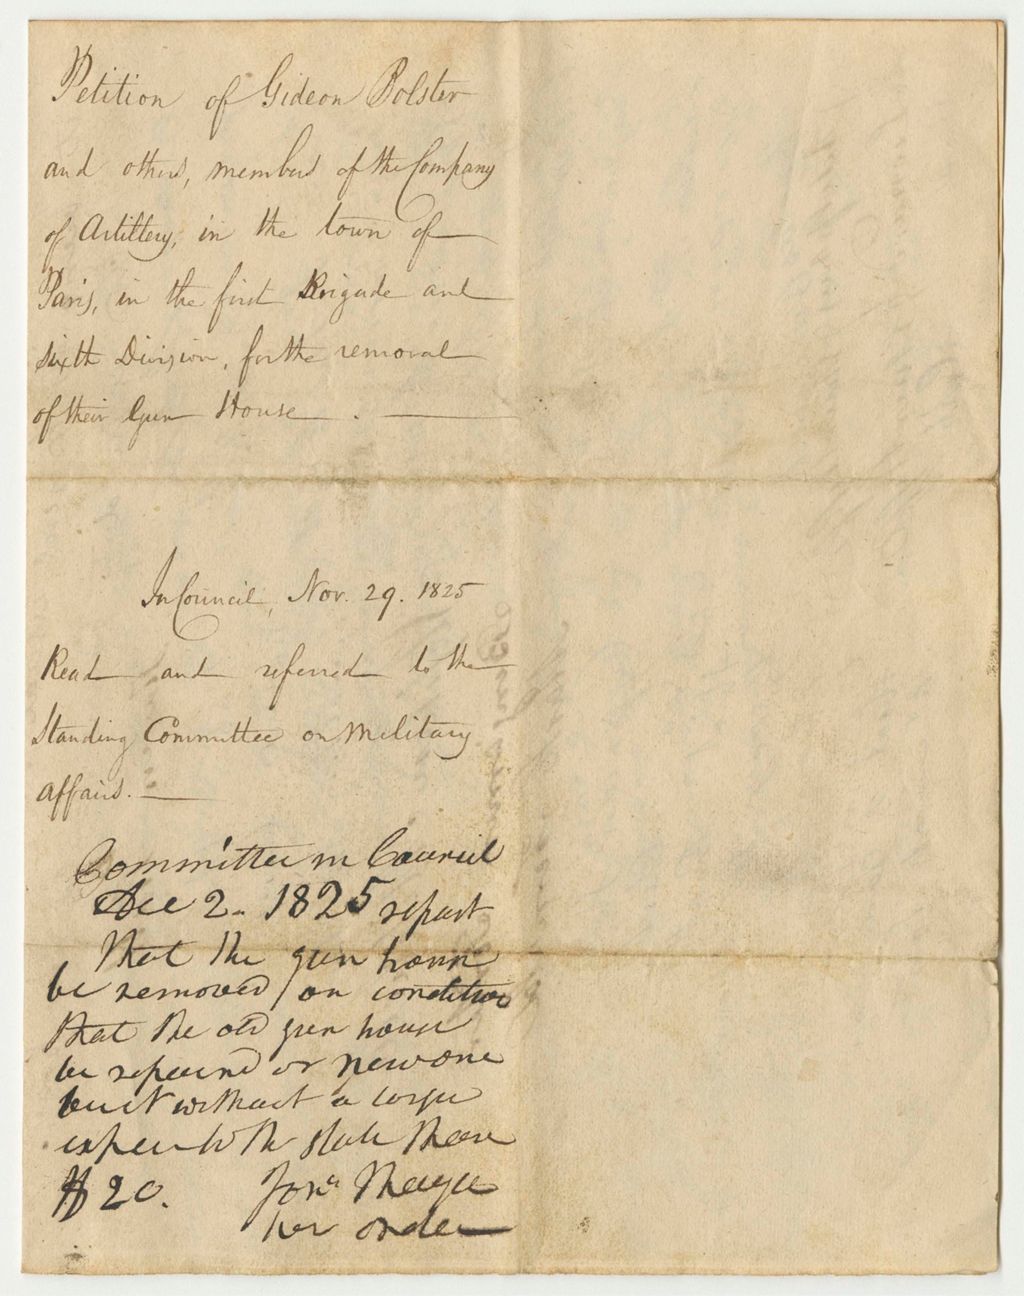 Petition of Gideon Bolster
and others, members of the Company
of Artillery, in the town of
Paris, in the first Brigade and
sixth Division, for the removal
of their Gun House.
In Council, Nov. 29. 1825
Read and referred to the
Standing Committee on Military
affairs.
Committee in Council
Dec 2. 1825 report
that the gun house
be removed on condition
that the old gun house
be repaired or new one
built without a larger
expen to the state than
$20. Jona Thayer
per order